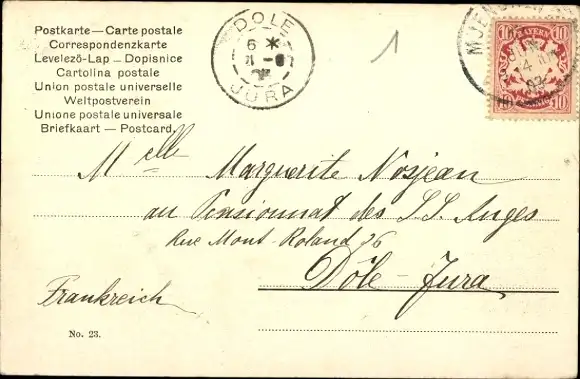 Postkarte — Carte postale
Correspondenzkarte
Levelező-Lap — Dopisnice
Cartolina postale
Union postale universelle
Weltpostverein
Unione postale universale
Briefkaart — Postcard.
DOLE
JURA
1
BAYERN
10 10
10 10
Melle Marguerite Nosjean
au Pensionnat des S.S. Anges
Rue Mont-Roland 26
Dôle-Jura
Frankreich
No. 23.